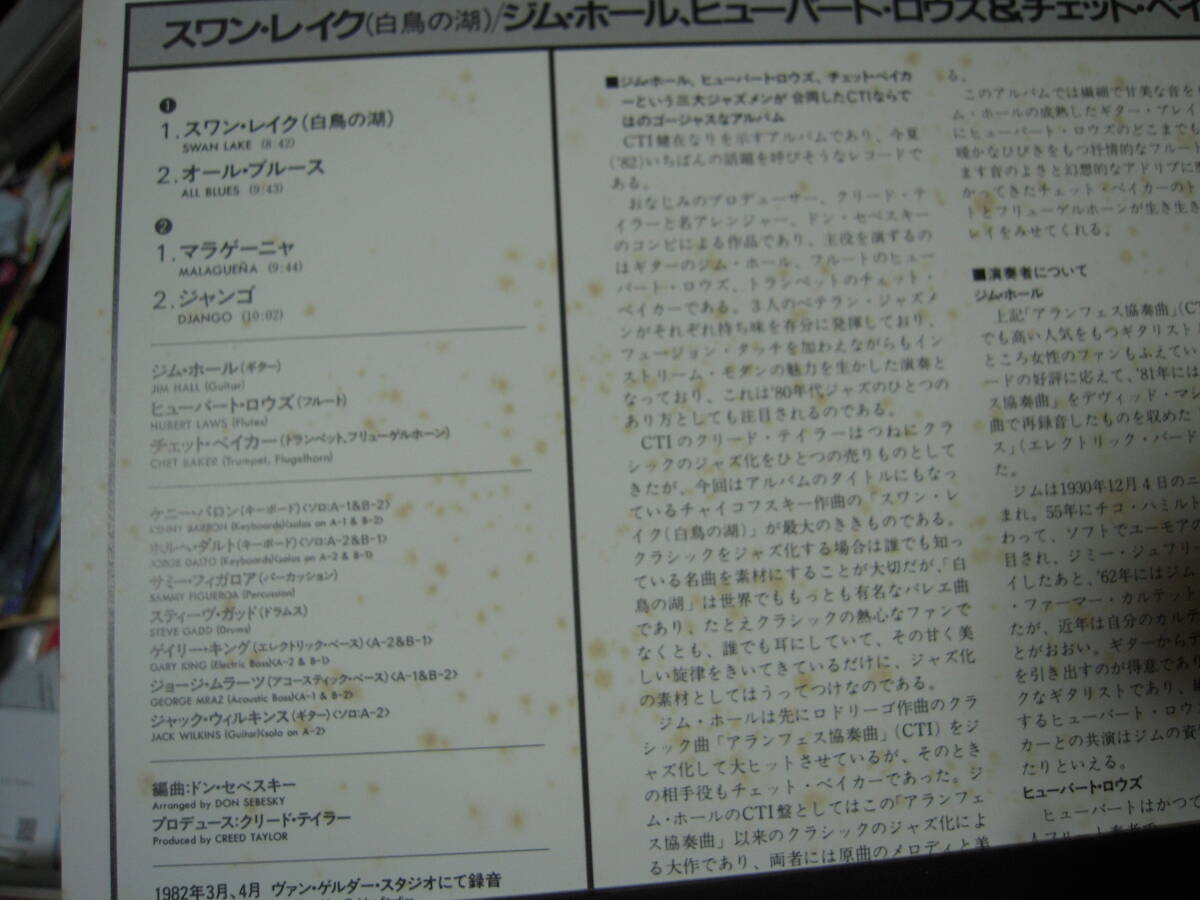 スワン・レイク(白鳥の湖)/ジム・ホール、ヒューバート・ロウズ&チェット・ベイ
❶
1. スワン・レイク(白鳥の湖)
SWAN LAKE (8:42)
2. オール・ブルース
ALL BLUES (9:43)
❷
1. マラゲーニャ
MALAGUEÑA (9:44)
2. ジャンゴ
DJANGO (10:02)
ジム・ホール(ギター)
JIM HALL (Guitar)
ヒューバート・ロウズ(フルート)
HUBERT LAWS (Flutes)
チェット・ベイカー(トランペット、フリューゲルホーン)
CHET BAKER (Trumpet, Flugelhorn)
ケニー・バロン(キーボード)〈ソロ:A-1&B-2〉
KENNY BARRON (Keyboards)(solos on A-1 & B-2)
ホルヘ・ダルト(キーボード)〈ソロ:A-2&B-1〉
JORGE DALTO (Keyboards)(solos on A-2 & B-1)
サミー・フィガロア(パーカッション)
SAMMY FIGUEROA (Percussion)
スティーヴ・ガッド(ドラムス)
STEVE GADD (Drums)
ゲイリー・キング(エレクトリック・ベース)〈A-2&B-1〉
GARY KING (Electric Bass)(A-2 & B-1)
ジョージ・ムラーツ(アコースティック・ベース)〈A-1&B-2〉
GEORGE MRAZ (Acoustic Bass)(A-1 & B-2)
ジャック・ウィルキンス(ギター)〈ソロ:A-2〉
JACK WILKINS (Guitar)(solo on A-2)
編曲:ドン・セベスキー
Arranged by DON SEBESKY
プロデュース:クリード・テイラー
Produced by CREED TAYLOR
1982年3月、4月 ヴァン・ゲルダー・スタジオにて録音
■ジム・ホール、ヒューバート・ロウズ、チェット・ベイカ
ーという三大ジャズメンが合同したCTIならで
はのゴージャスなアルバム
CTI健在なりを示すアルバムであり、今夏
('82)いちばんの話題を呼びそうなレコードで
ある。
おなじみのプロデューサー、クリード・テ
イラーと名アレンジャー、ドン・セベスキー
のコンビによる作品であり、主役を演ずるの
はギターのジム・ホール、フルートのヒュー
バート・ロウズ、トランペットのチェット・
ベイカーである。3人のベテラン・ジャズメ
ンがそれぞれ持ち味を存分に発揮しており、
フュージョン・タッチを加わえながらもイン
ストリーム・モダンの魅力を生かした演奏と
なっており、これは'80年代ジャズのひとつの
あり方としても注目されるのである。
CTIのクリード・テイラーはつねにクラ
シックのジャズ化をひとつの売りものとして
きたが、今回はアルバムのタイトルにもなっ
ているチャイコフスキー作曲の「スワン・レ
イク(白鳥の湖)」が最大のききものである。
クラシックをジャズ化する場合は誰でも知っ
ている名曲を素材にすることが大切だが、「白
鳥の湖」は世界でももっとも有名なバレエ曲
であり、たとえクラシックの熱心なファンで
なくとも、誰でも耳にしていて、その甘く美
しい旋律をきいてきているだけに、ジャズ化
の素材としてはうってつけなのである。
ジム・ホールは先にロドリーゴ作曲のクラ
シック曲「アランフェス協奏曲」(CTI)をジ
ャズ化して大ヒットさせているが、そのとき
の相手役もチェット・ベイカーであった。ジ
ム・ホールのCTI盤としてはこの「アランフェ
ス協奏曲」以来のクラシックのジャズ化によ
る大作であり、両者には原曲のメロディと美
る。
このアルバムでは繊細で甘美な音を
ム・ホールの成熟したギター・プレイ
にヒューバート・ロウズのどこまでも
暖かなひびきをもつ抒情的なフルート
ます音のよさと幻想的なアドリブに
かってきたチェット・ベイカーのト
トとフリューゲルホーンが生き生き
レイをみせてくれる。
■演奏者について
ジム・ホール
上記「アランフェス協奏曲」(CT
でも高い人気をもつギタリスト
ところ女性のファンもふえてい
ードの好評に応えて、'81年には
ス協奏曲」をデヴィッド・マ
曲で再録音したものを収めた
ス」(エレクトリック・バード
た。
ジムは1930年12月4日のニ
まれ。55年にチコ・ハミルト
わって、ソフトでユーモアの
目され、ジミー・ジュフリ
イしたあと、'62年にはジム
・ファーマー・カルテット
たが、近年は自分のカルテ
とがおおい。ギターから
を引き出すのが得意であり
クなギタリストであり、
するヒューバート・ロウ
カーとの共演はジムの資
たりといえる。
ヒューバート・ロウズ
ヒューバートはかつて